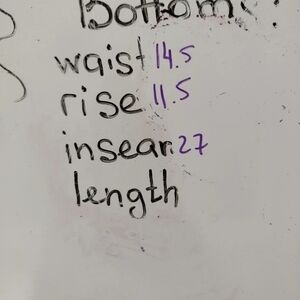 Bottom:
waist 14.5
rise 11.5
insean 27
length